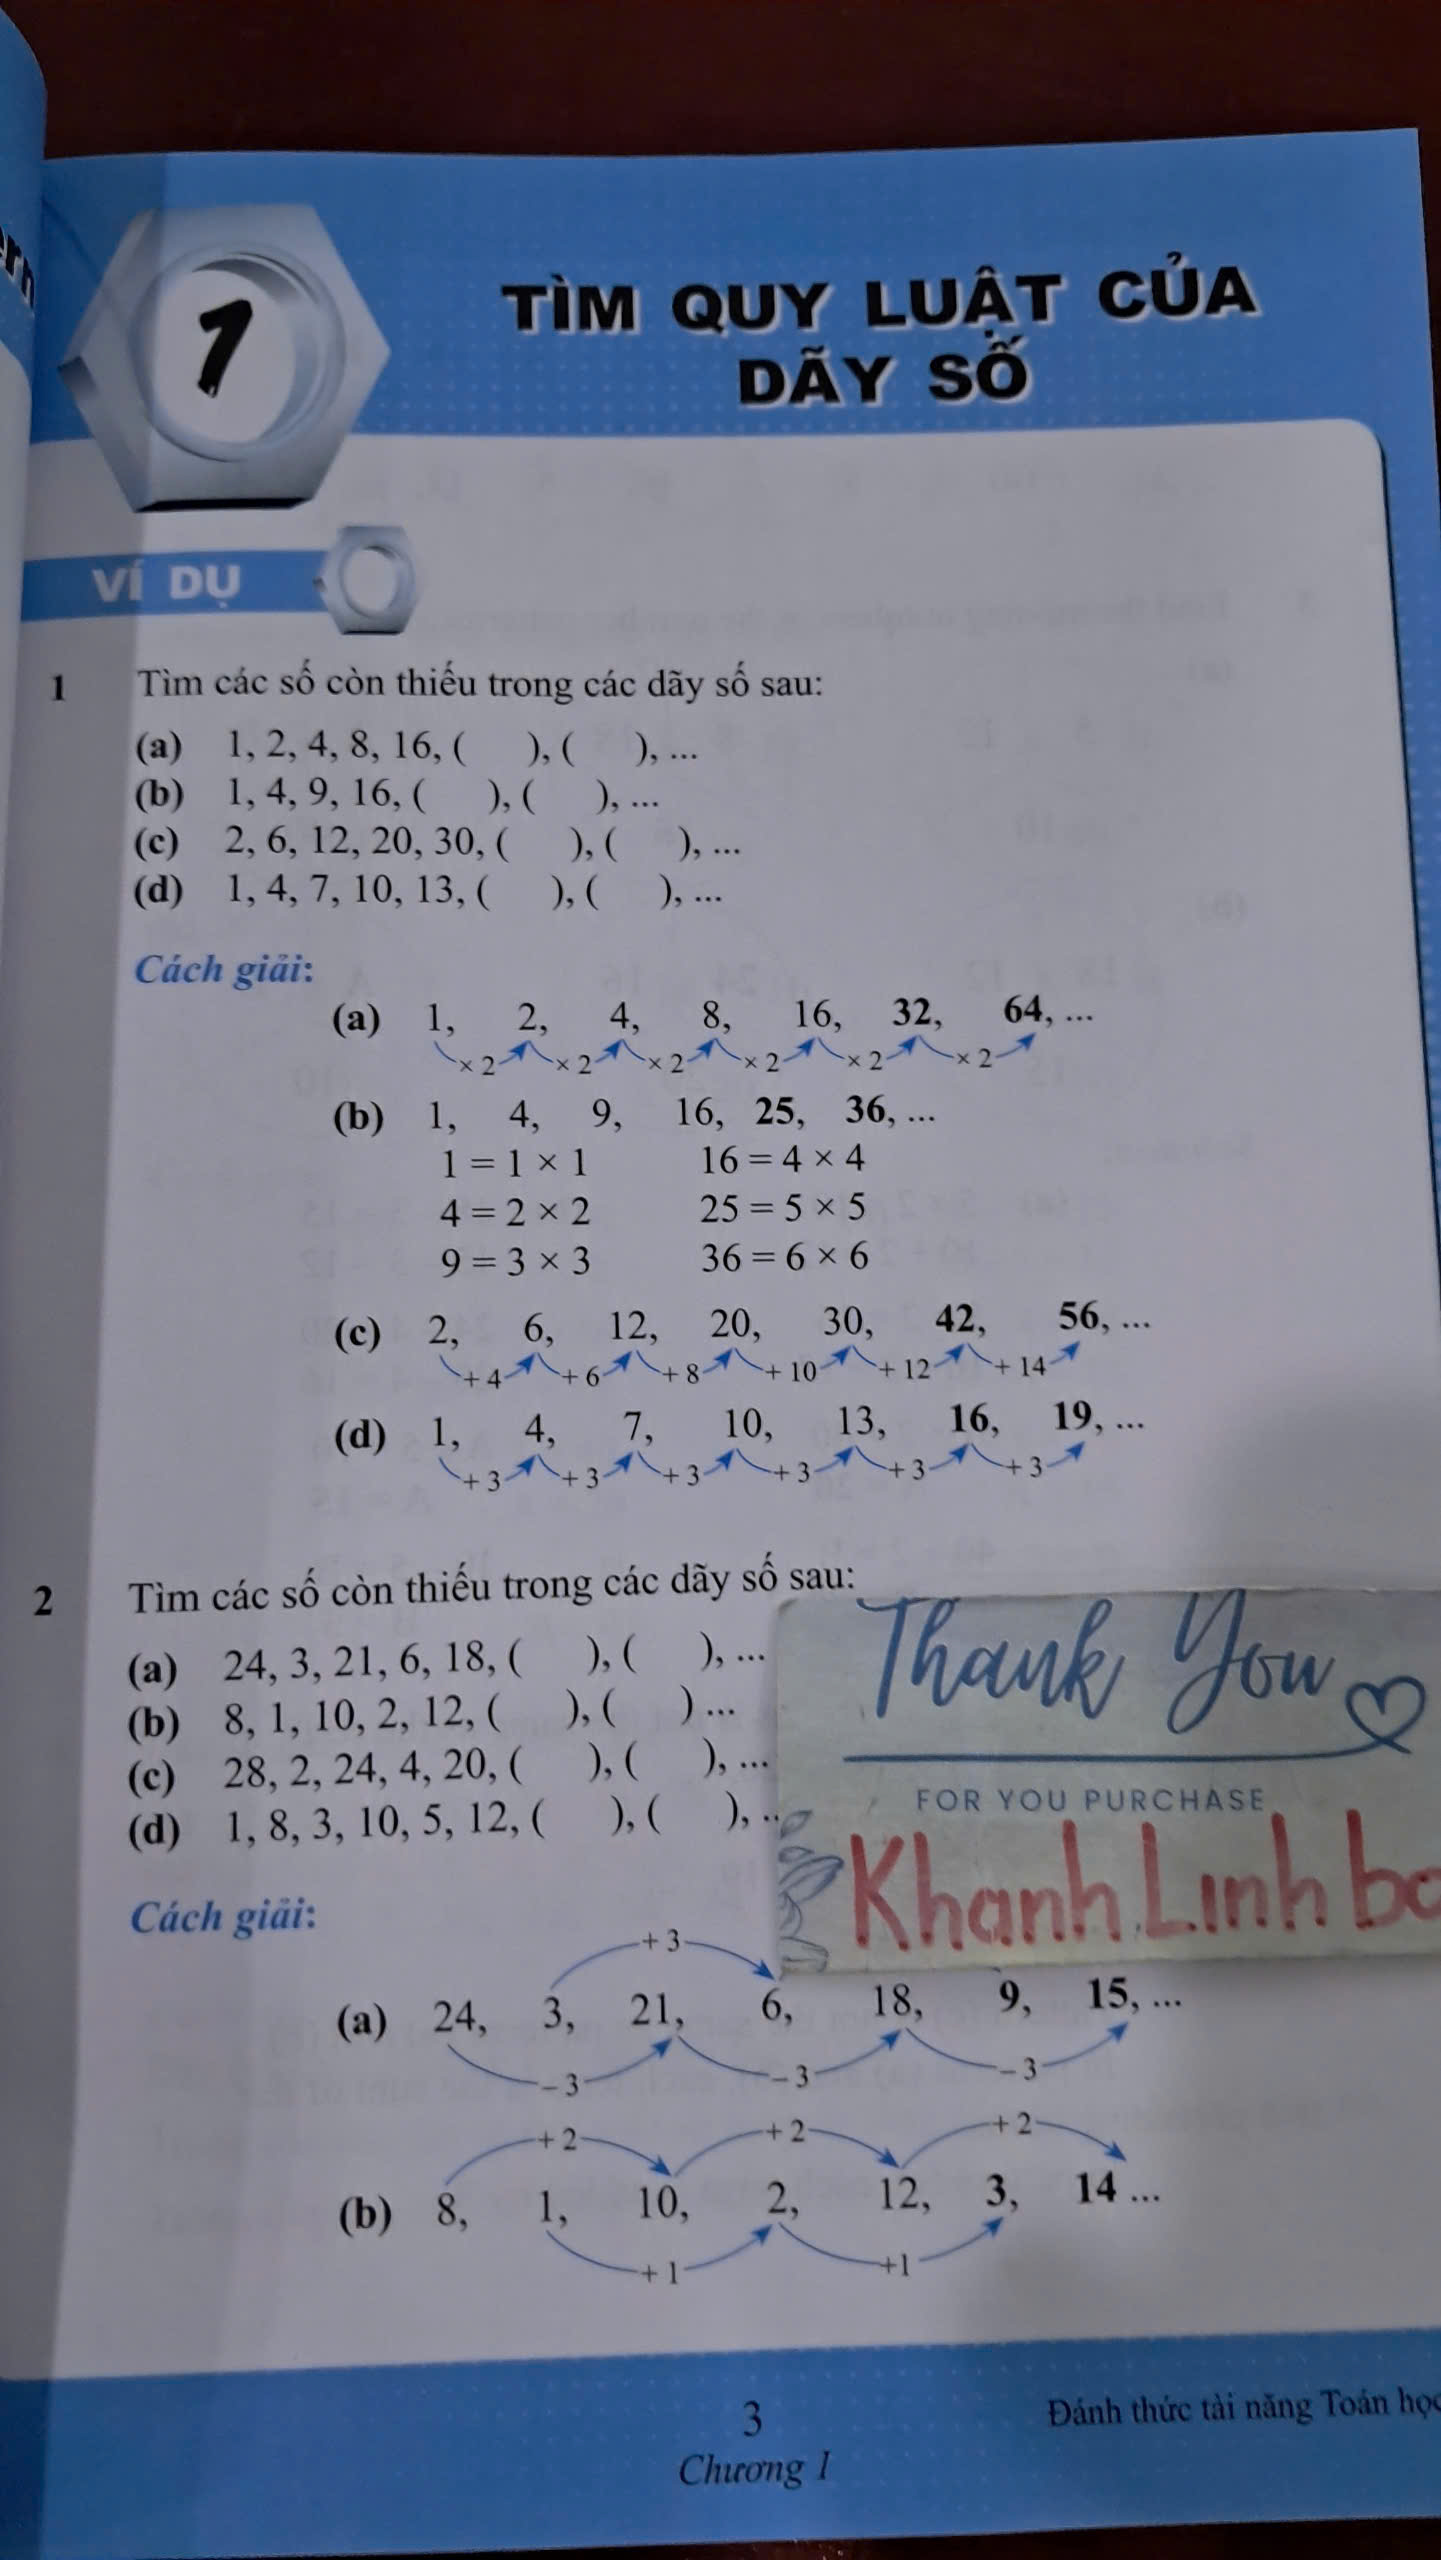 1
TÌM QUY LUẬT CỦA
DÃY SỐ
VÍ DỤ
1 Tìm các số còn thiếu trong các dãy số sau:
(a) 1, 2, 4, 8, 16, ( ), ( ), ...
(b) 1, 4, 9, 16, ( ), ( ), ...
(c) 2, 6, 12, 20, 30, ( ), ( ), ...
(d) 1, 4, 7, 10, 13, ( ), ( ), ...
Cách giải:
(a) 1, 2, 4, 8, 16, 32, 64, ...
× 2 × 2 × 2 × 2 × 2 × 2
(b) 1, 4, 9, 16, 25, 36, ...
1 = 1 × 1 16 = 4 × 4
4 = 2 × 2 25 = 5 × 5
9 = 3 × 3 36 = 6 × 6
(c) 2, 6, 12, 20, 30, 42, 56, ...
+ 4 + 6 + 8 + 10 + 12 + 14
(d) 1, 4, 7, 10, 13, 16, 19, ...
+ 3 + 3 + 3 + 3 + 3 + 3
2 Tìm các số còn thiếu trong các dãy số sau:
(a) 24, 3, 21, 6, 18, ( ), ( ), ...
(b) 8, 1, 10, 2, 12, ( ), ( ) ...
(c) 28, 2, 24, 4, 20, ( ), ( ), ...
(d) 1, 8, 3, 10, 5, 12, ( ), ( ), ..
Thank You
FOR YOU PURCHASE
Khanh Linh
Cách giải:
+ 3
(a) 24, 3, 21, 6, 18, 9, 15, ...
– 3 – 3 – 3
+ 2 + 2 + 2
(b) 8, 1, 10, 2, 12, 3, 14 ...
+ 1 +1
3
Đánh thức tài năng Toán
Chương 1